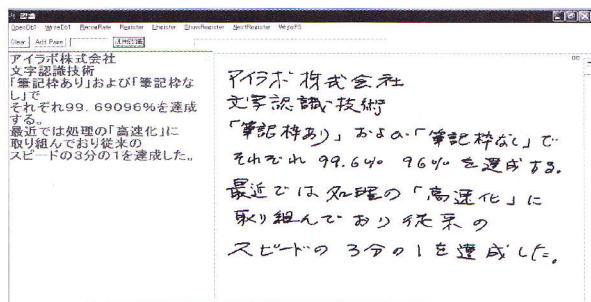 認識
OpenDb1 WriteDb1 RecogRate Register Unregister ShowRegister NextRegister WritePS
Clear Add Page
アイラボ株式会社
文字認識技術
「筆記枠あり」および「筆記枠な
し」で
それぞれ99.69096%を達成
する。
最近では処理の「高速化」に
取り組んでおり従来の
スピードの3分の1を達成した。
アイラボ株式会社
文字認識技術
「筆記枠あり」および「筆記枠なし」で
それぞれ 99.6% 96%を達成する。
最近では処理の「高速化」に
取り組んでおり従来の
スピードの3分の1を達成した。